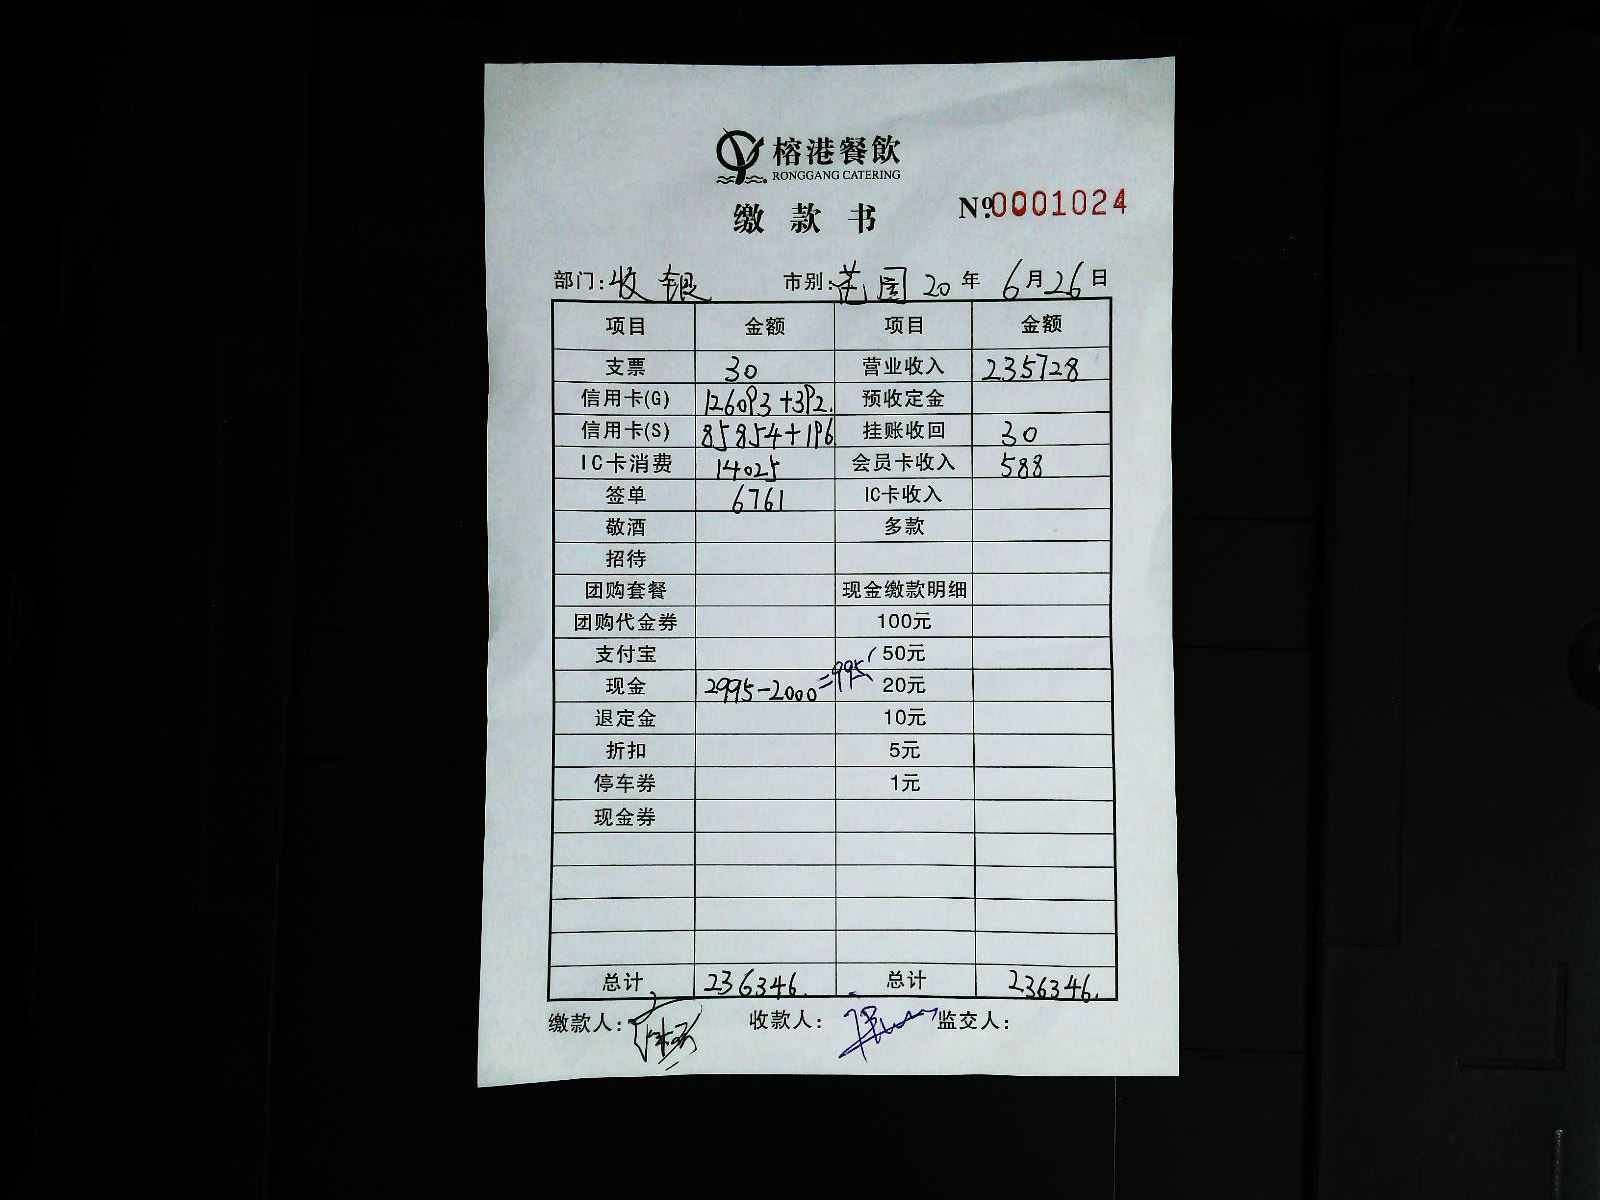 榕港餐飲
RONGGANG CATERING
缴款书
№0001024
部门:收银 市别:范围 20年6月26日
项目 金额 项目 金额
支票 30 营业收入 235728
信用卡(G) 126093+392. 预收定金
信用卡(S) 85854+196 挂账收回 30
IC卡消费 14025 会员卡收入 588
签单 6761 IC卡收入
敬酒 多款
招待
团购套餐 现金缴款明细
团购代金券 100元
支付宝 50元
现金 2995-2000=995 20元
退定金 10元
折扣 5元
停车券 1元
现金券
总计 236346. 总计 236346.
缴款人: 收款人: 监交人: